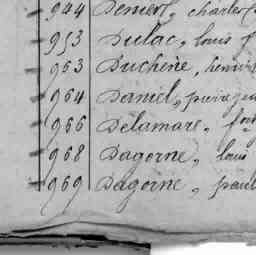 944 Deniert, charles
953 Dulac, louis f
963 Duchêne, henri
964 Daniel, pierre
966 Delamare, fr
968 Dagorne, louis
969 Dagorne, paul